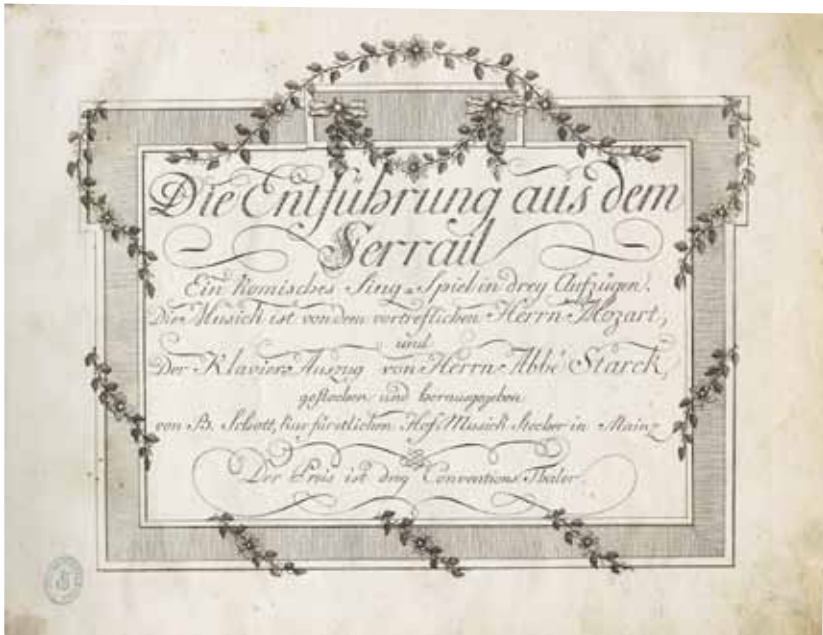 Die Entführung aus dem
Serrail
Ein komisches Sing-Spiel in drey Aufzügen.
Die Musick ist von dem vortreflichen Herrn Mozart,
und
Der Klavier-Auszug von Herrn Abbé Starck,
gestochen und herausgegeben
von B. Schott, kurfürstlichen Hof-Musick Stecher in Mainz
Der Preis ist drey Conventions Thaler.